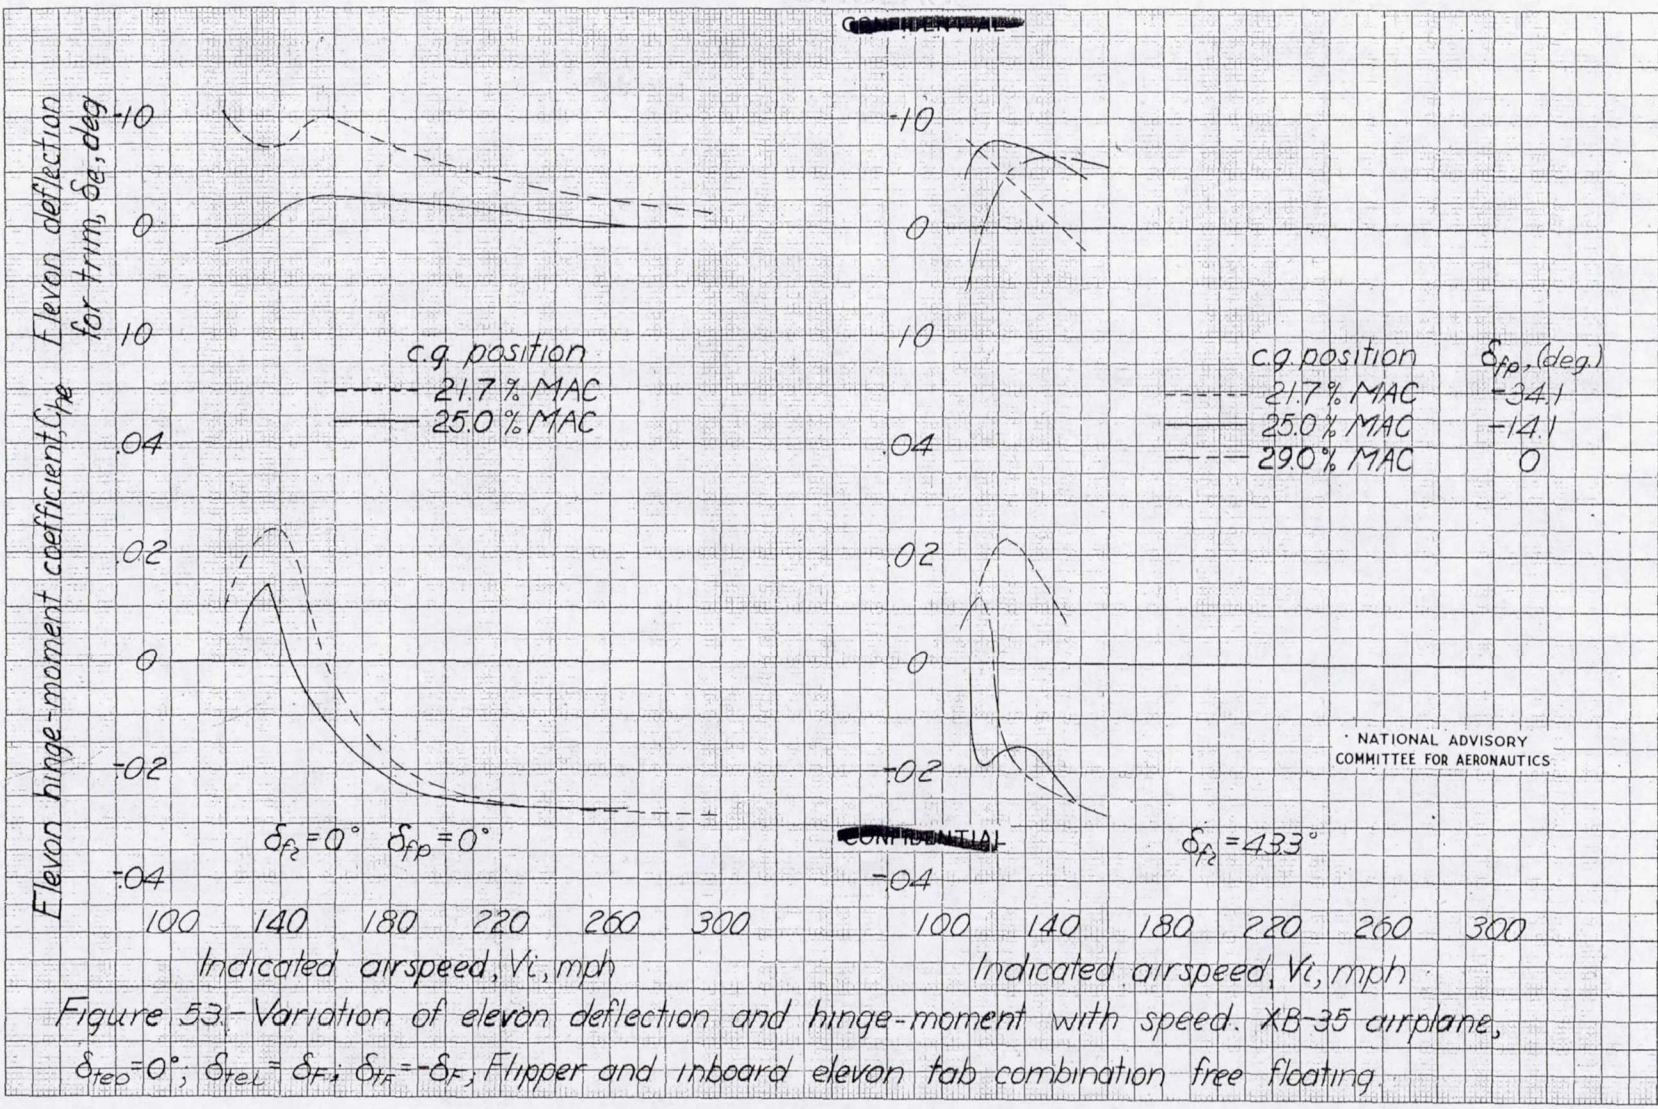 CONFIDENTIAL
Elevon deflection
for trim, δe, deg
-10
0
10
Elevon hinge-moment coefficient, Che
.04
.02
0
-.02
-.04
c.g. position
21.7 % MAC
25.0 % MAC
δf2=0° δfp=0°
100 140 180 220 260 300
Indicated airspeed, Vi, mph
-10
0
10
.04
.02
0
-.02
-.04
c.g. position δfp, (deg.)
21.7 % MAC -34.1
25.0 % MAC -14.1
29.0 % MAC 0
NATIONAL ADVISORY
COMMITTEE FOR AERONAUTICS
CONFIDENTIAL
δf2=433°
100 140 180 220 260 300
Indicated airspeed, Vi, mph
Figure 53.-Variation of elevon deflection and hinge-moment with speed. XB-35 airplane,
δteo=0°; δtei= δF; δtF=-δF; Flipper and inboard elevon tab combination free floating.